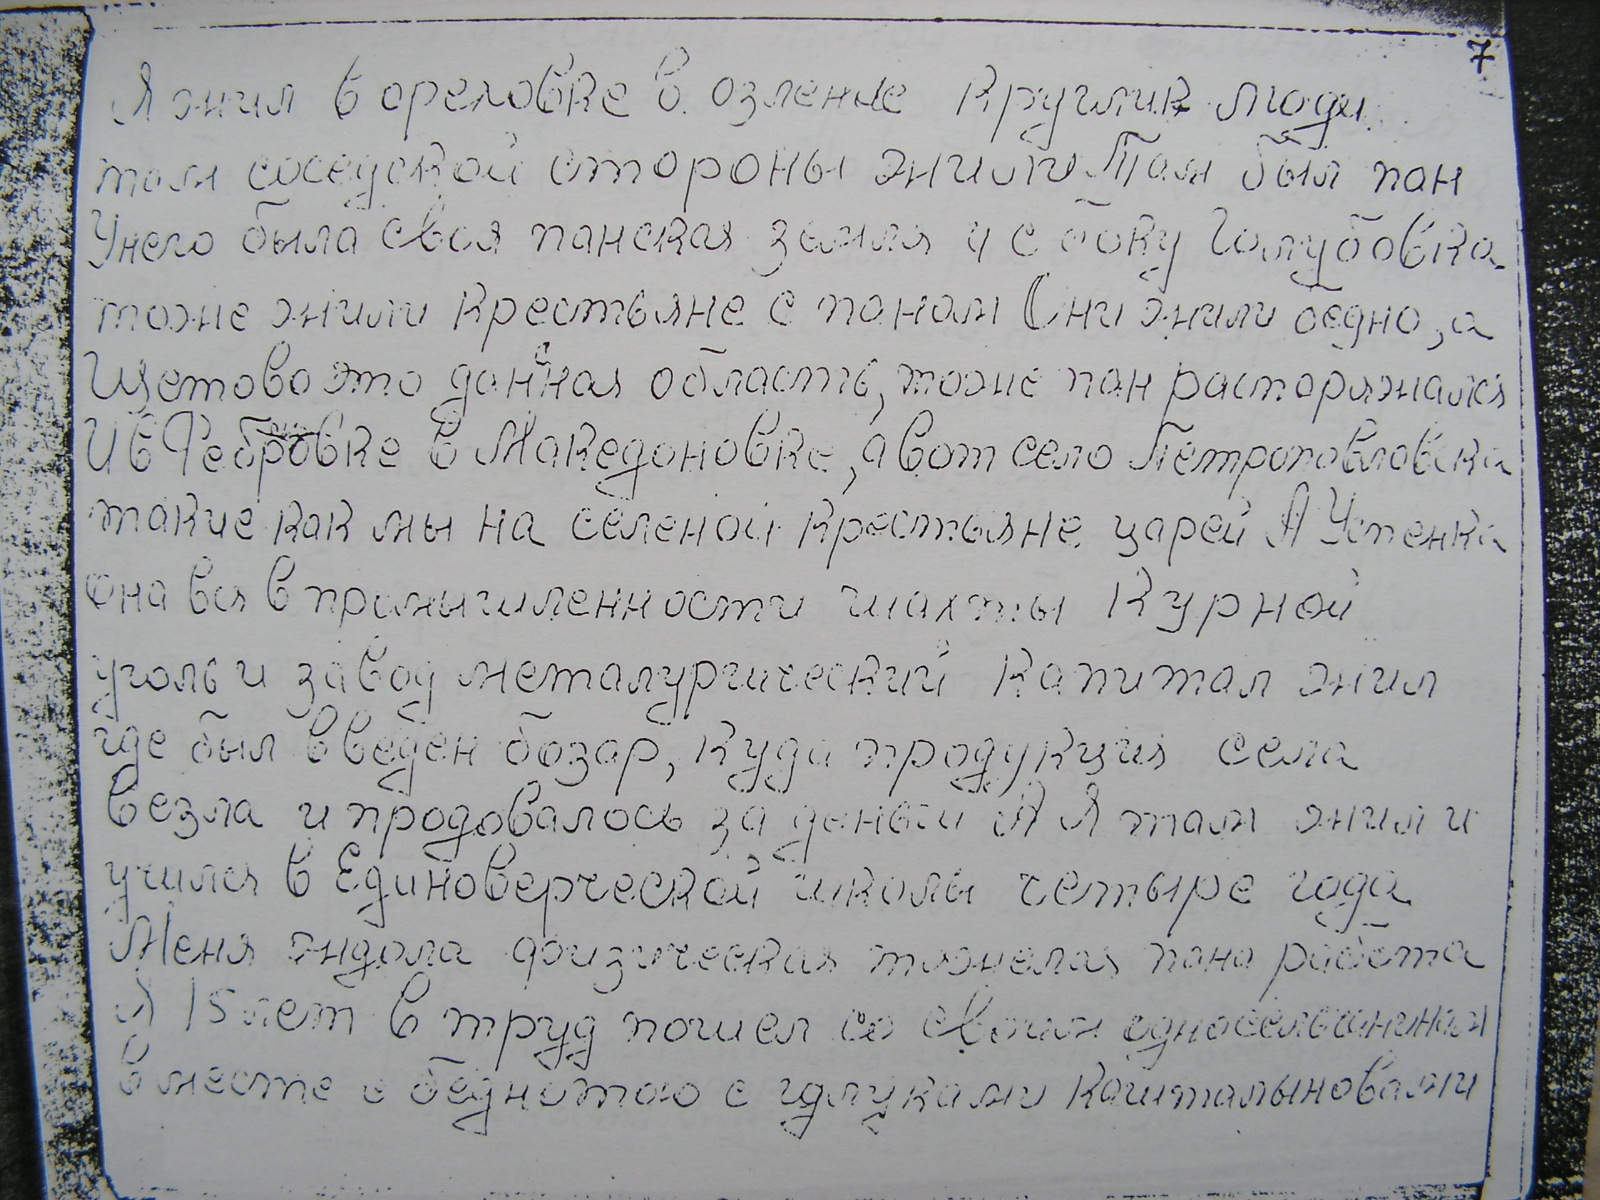 7
Я жил в ореховке в. озление Круглик люди
там соседской стороны жили Там был пан
Унего была своя панская земля и с боку Голубовка
тоже жили крестьяне с паном Они жили бедно, а
Щетово это данная область, тоже пан расторяжался
И в Фебровке в Македоновке, а вот село Петропавловска
такие как мы на селеной крестьяне царей А Успенка
она вся в промышленности шахты Курной
уголь и завод металургический Капитал жил
где был введен бозар, куда продукция села
везла и продовалось за деньги А Я там жил и
учился в Единоверческой школы четыре года
Меня ждала физическая тяжелая пана работа
Я 15 лет в труд пошел со своим односельчанинам
вместе с беднотою с